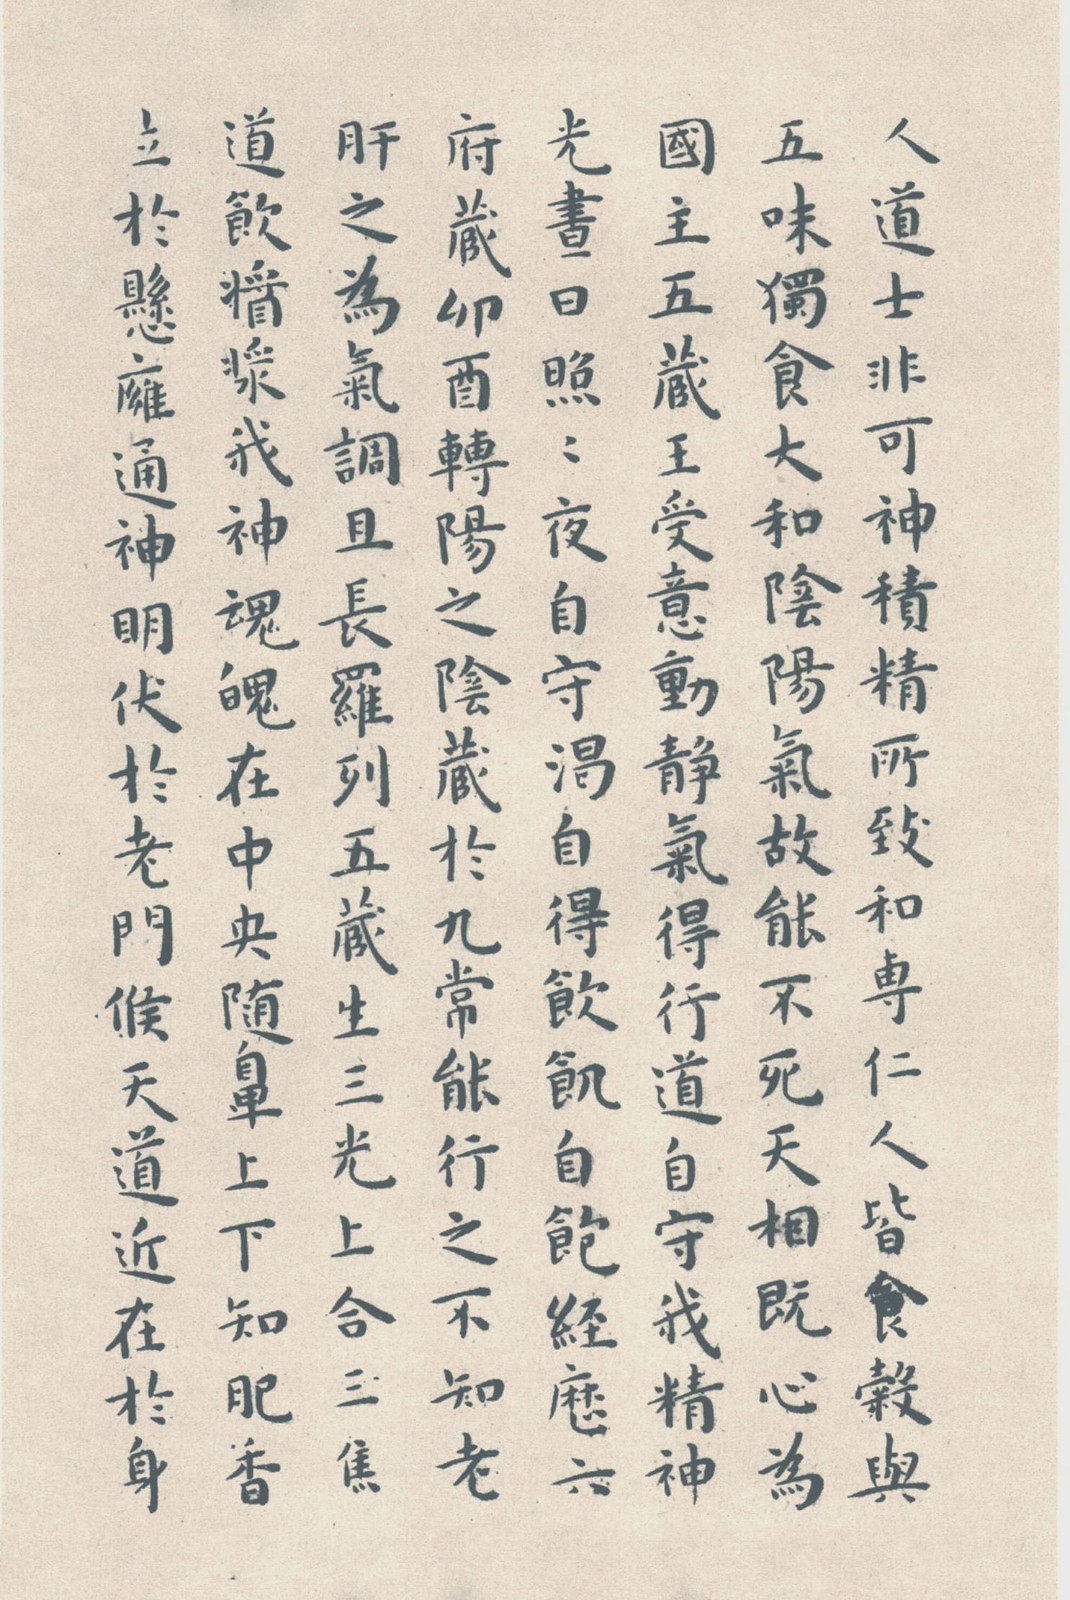 人道士非可神積精所致和専仁人皆食穀與
五味獨食大和陰陽氣故能不死天相既心為
國主五蔵王受意動静氣得行道自守我精神
光晝日照〻夜自守渴自得飲飢自飽經歷六
府蔵卯酉轉陽之陰蔵於九常能行之不知老
肝之為氣調且長羅列五蔵生三光上合三焦
道飲漿我神魂魄在中央随鼻上下知肥香
立於懸癰通神明伏於老門候天道近在於身